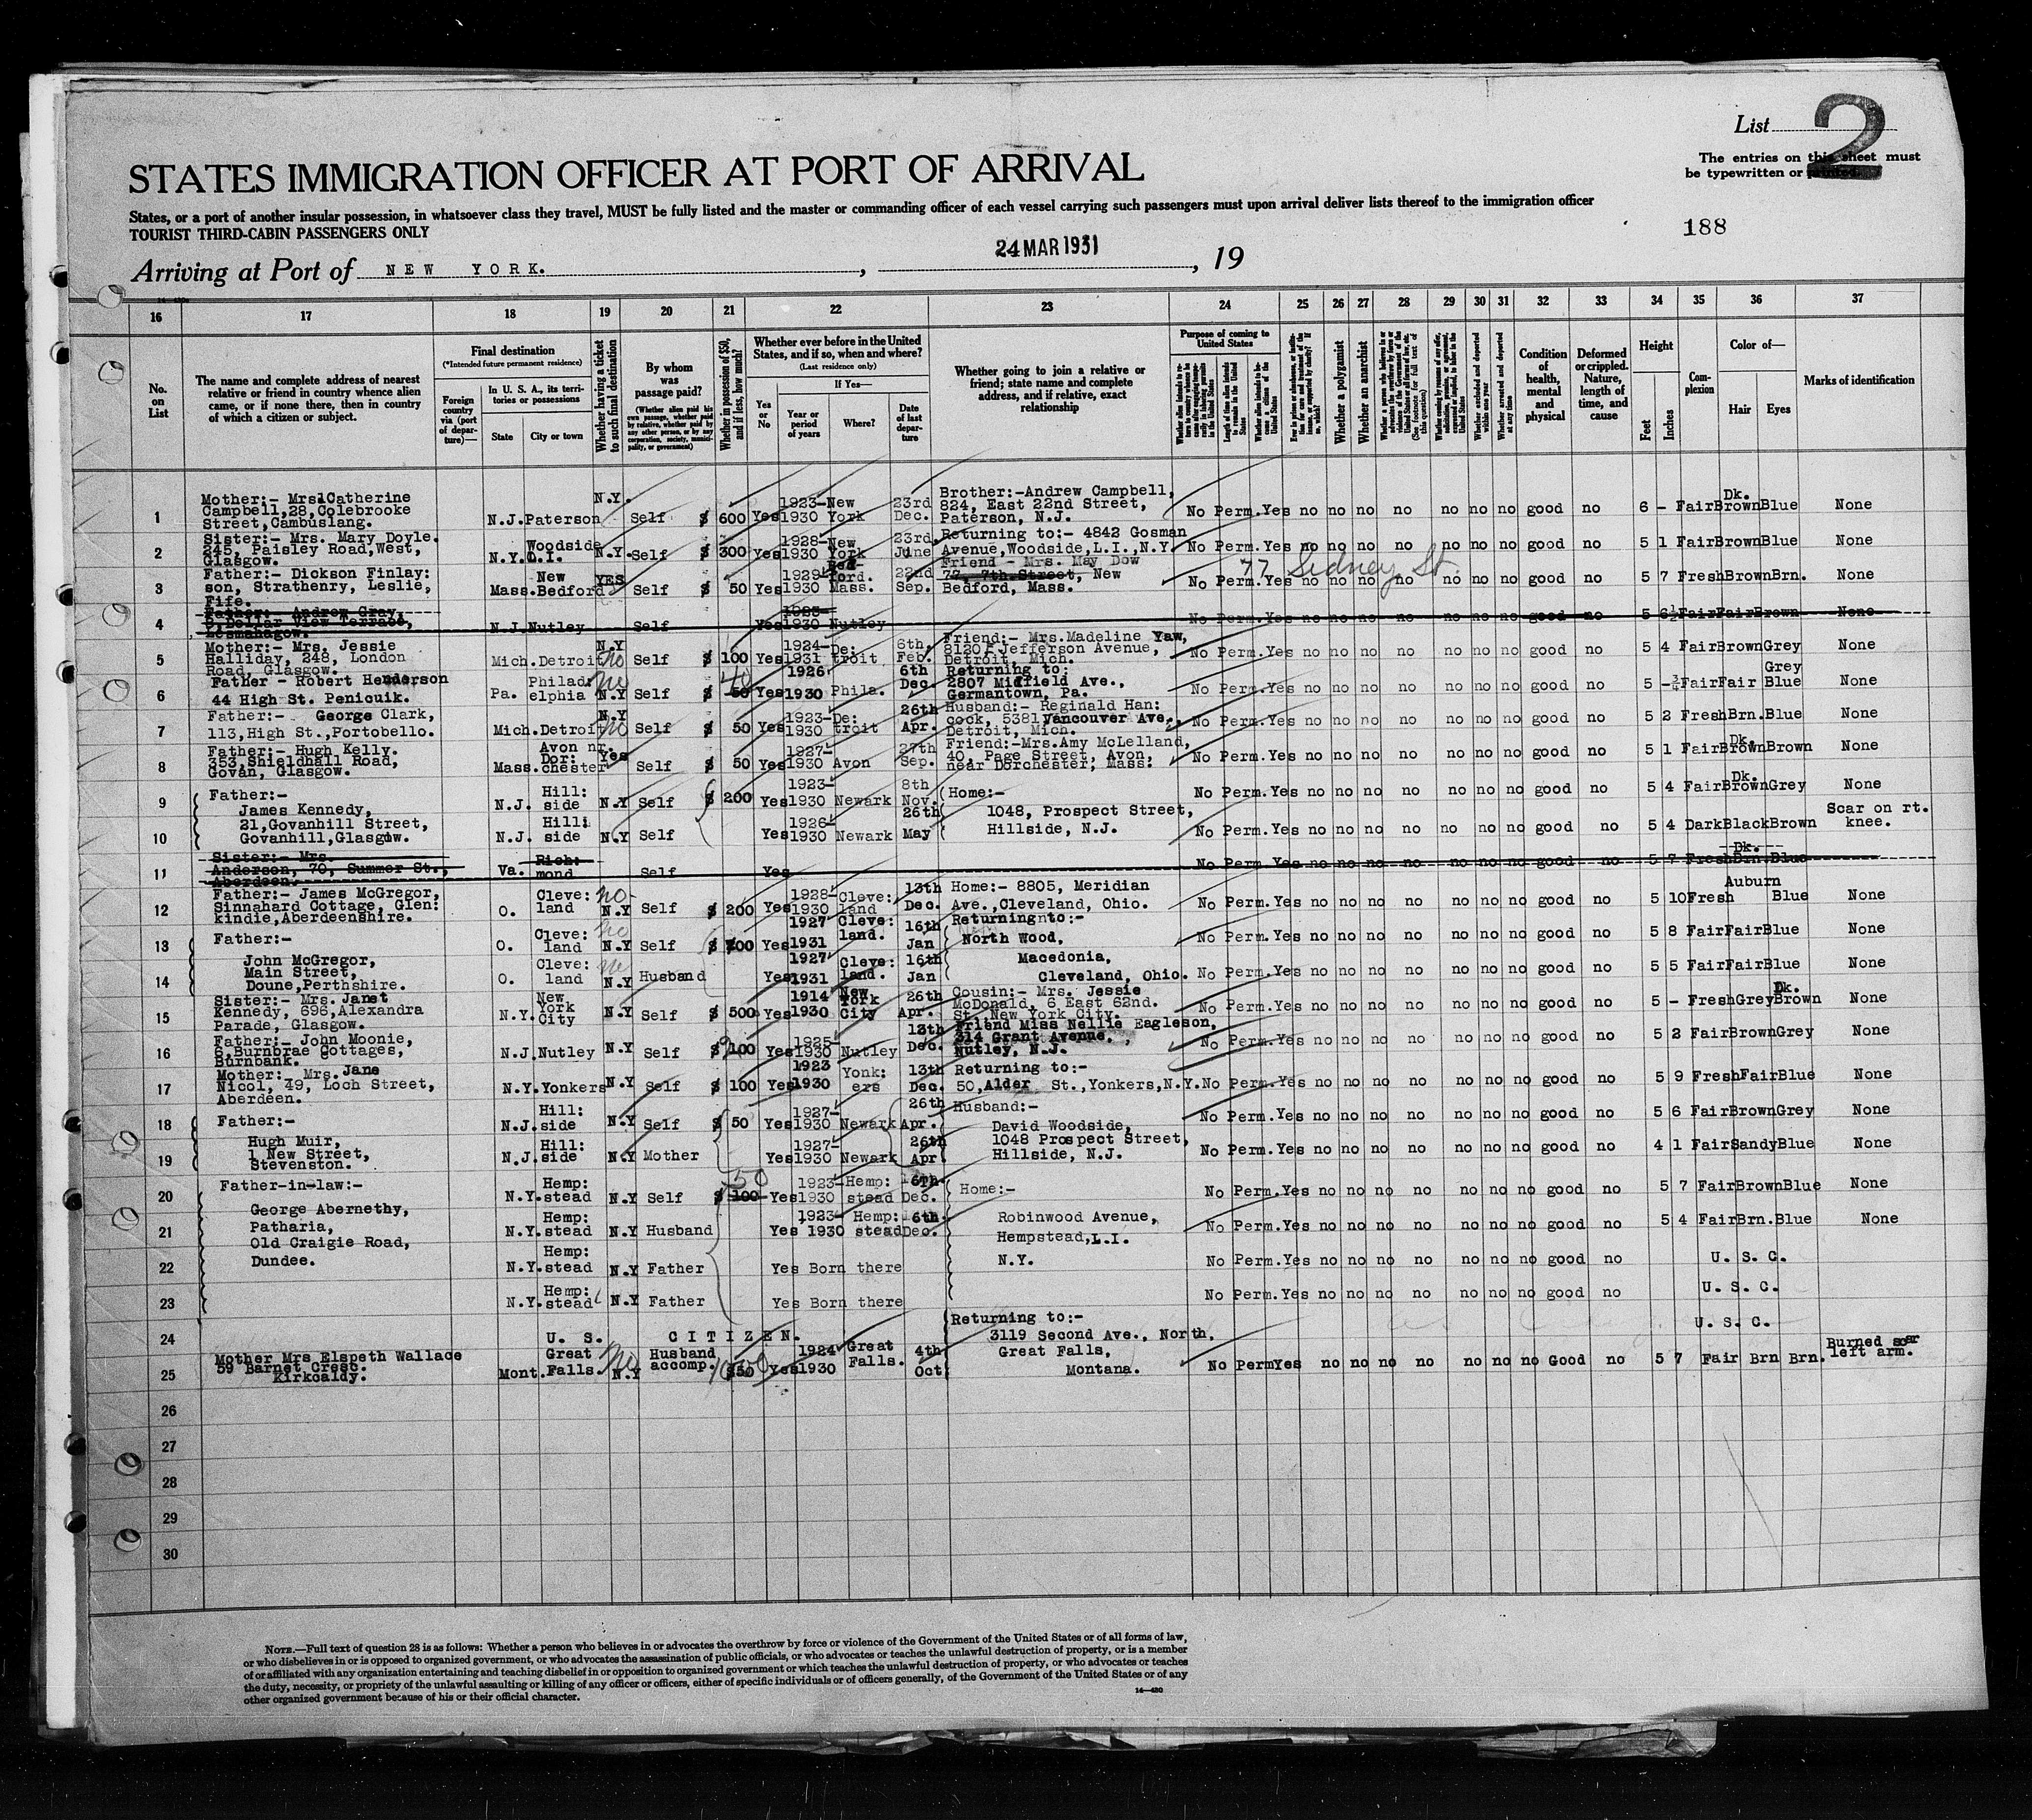 List 2
STATES IMMIGRATION OFFICER AT PORT OF ARRIVAL
The entries on this sheet must
be typewritten or printed.
States, or a port of another insular possession, in whatsoever class they travel, MUST be fully listed and the master or commanding officer of each vessel carrying such passengers must upon arrival deliver lists thereof to the immigration officer
TOURIST THIRD-CABIN PASSENGERS ONLY
188
Arriving at Port of NEW YORK. , 24 MAR 1931 , 19
16 17 18 19 20 21 22 23 24 25 26 27 28 29 30 31 32 33 34 35 36 37
No. on List
The name and complete address of nearest relative or friend in country whence alien came, or if none there, then in country of which a citizen or subject.
Final destination
(*Intended future permanent residence)
Foreign country via (port of departure)—
In U. S. A., its territories or possessions
State
City or town
Whether having a ticket to such final destination
By whom was passage paid?
(Whether alien paid his own passage, whether paid by relative, whether paid by any other person, or by any corporation, society, municipality, or government)
Whether in possession of $50, and if less, how much?
Whether ever before in the United States, and if so, when and where?
(Last residence only)
Yes or No
If Yes—
Year or period of years
Where?
Date of last departure
Whether going to join a relative or friend; state name and complete address, and if relative, exact relationship
Purpose of coming to United States
Whether a polygamist
Whether an anarchist
Condition of health, mental and physical
Deformed or crippled. Nature, length of time, and cause
Height
Feet
Inches
Complexion
Color of—
Hair
Eyes
Marks of identification
1 Mother:- Mrs. Catherine Campbell,28,Colebrooke Street,Cambuslang. N.J. Paterson N.Y. Self $ 600 Yes 1923-1930 New York 23rd Dec. Brother:-Andrew Campbell, 824, East 22nd Street, Paterson, N.J. No Perm. Yes no no no no no no no good no 6 - Fair Dk. Brown Blue None
2 Sister:- Mrs. Mary Doyle. 245, Paisley Road,West, Glasgow. N.Y. Woodside L.I. N.Y. Self $ 300 Yes 1928-1930 New York 23rd June Returning to:- 4842 Gosman Avenue,Woodside,L.I.,N.Y. No Perm. Yes no no no no no no no good no 5 1 Fair Brown Blue None
3 Father:- Dickson Finlay: son, Strathenry, Leslie, Fife. Mass. New Bedford YES Self $ 50 Yes 1929-1930 Bed-ford. Mass. 22nd Sep. Friend - Mrs. May Dow 77 7th Street, New Bedford, Mass. 77 Sidney St. No Perm. Yes no no no no no no no good no 5 7 Fresh Brown Brn. None
4 Father:- Andrew Gray, Dollar View Terrace, Lesmahagow. N.J. Nutley Self Yes 1930 Nutley No Perm. Yes no no no no no no no good no 5 6½ Fair Fair Brown None
5 Mother:- Mrs. Jessie Halliday, 248, London Road, Glasgow. Mich. Detroit N.Y no Self $ 100 Yes 1924-1931 De: troit 6th, Feb. Friend:- Mrs.Madeline Yaw, 8120 E Jefferson Avenue, Detroit, Mich. No Perm. Yes no no no no no no no good no 5 4 Fair Brown Grey None
6 Father - Robert Henderson 44 High St. Penicuik. Pa. Philad: elphia no N.Y Self 40 $ 50 Yes 1926 1930 Phila. 6th Dec. Returning to: 2807 Midfield Ave., Germantown, Pa. No Perm. Yes no no no no no no no good no 5 -¾ Fair Fair Grey Blue None
7 Father:- George Clark, 113,High St.,Portobello. Mich. Detroit N.Y no Self $ 50 Yes 1923-1930 De: troit 26th Apr. Husband:- Reginald Han: cock, 5381,Vancouver Ave., Detroit, Mich. No Perm. Yes no no no no no no no good no 5 2 Fresh Brn. Blue None
8 Father:- Hugh Kelly. 353,Shieldhall Road, Govan, Glasgow. Mass. Avon nr. Dor: chester Yes Self $ 50 Yes 1927-1930 Avon 27th Sep. Friend:-Mrs.Amy McLelland, 40, Page Street, Avon, near Dorchester, Mass. No Perm. Yes no no no no no no no good no 5 1 Fair Dk. Brown Brown None
9 Father:- N.J. Hill: side N.Y Self $ 200 Yes 1923-1930 Newark 8th Nov. Home:- No Perm. Yes no no no no no no no good no 5 4 Fair Dk. Brown Grey None
James Kennedy, 21,Govanhill Street, Govanhill,Glasgow. 1048, Prospect Street, Hillside, N.J.
10 N.J. Hill: side N.Y Self Yes 1926-1930 Newark 26th May No Perm. Yes no no no no no no no good no 5 4 Dark Black Brown Scar on rt. knee.
11 Sister:- Mrs. Anderson, 70, Summer St., Aberdeen. Va. Rich: mond Self Yes No Perm. Yes no no no no no no no good no 5 7 Fresh Dk. Brn. Blue
12 Father:- James McGregor, Sinnahard Cottage, Glen: kindie,Aberdeenshire. O. Cleve: land no N.Y Self $ 200 Yes 1928-1930 Cleve: land 13th Dec. Home:- 8805, Meridian Ave.,Cleveland, Ohio. No Perm. Yes no no no no no no no good no 5 10 Fresh Auburn Blue None
13 Father:- O. Cleve: land no N.Y Self $ 700 Yes 1927 1931 Cleve: land. 16th Jan Returning to:- North Wood, No Perm. Yes no no no no no no no good no 5 8 Fair Fair Blue None
John McGregor, Main Street, Doune,Perthshire. Macedonia, Cleveland, Ohio.
14 O. Cleve: land no N.Y Husband Yes 1927 1931 Cleve: land. 16th Jan No Perm. Yes no no no no no no no good no 5 5 Fair Fair Blue None
15 Sister:- Mrs. Janet Kennedy, 696,Alexandra Parade, Glasgow. N.Y. New York City N.Y Self $ 500 Yes 1914 1930 New York City 26th Apr. Cousin:- Mrs. Jessie McDonald, 6 East 62nd. St. New York City. No Perm. Yes no no no no no no no good no 5 - Fresh Grey Dk. Brown None
16 Father:- John Moonie, 6,Burnbrae Cottages, Burnbank. N.J. Nutley N.Y Self $ 100 Yes 1925-1930 Nutley 13th Dec. Friend Miss Nellie Eagleson, 314 Grant Avenue, Nutley, N.J. No Perm. Yes no no no no no no no good no 5 2 Fair Brown Grey None
17 Mother:- Mrs. Jane Nicol, 49, Loch Street, Aberdeen. N.Y. Yonkers N.Y Self $ 100 Yes 1923 1930 Yonk: ers 13th Dec. Returning to:- 50,Alder St.,Yonkers,N.Y. No Perm. Yes no no no no no no no good no 5 9 Fresh Fair Blue None
18 Father:- N.J. Hill: side N.Y Self $ 50 Yes 1927-1930 Newark 26th Apr. Husband:- David Woodside, No Perm. Yes no no no no no no no good no 5 6 Fair Brown Grey None
Hugh Muir, 1 New Street, Stevenston. 1048 Prospect Street, Hillside, N.J.
19 N.J. Hill: side N.Y Mother Yes 1927-1930 Newark 26th Apr No Perm. Yes no no no no no no no good no 4 1 Fair Sandy Blue None
20 Father-in-law:- N.Y. Hemp: stead N.Y Self 50 $ 100 Yes 1923-1930 Hemp: stead 6th Dec. Home:- No Perm. Yes no no no no no no no good no 5 7 Fair Brown Blue None
George Abernethy, Patharia, Old Craigie Road, Dundee. Robinwood Avenue, Hempstead,L.I. N.Y.
21 N.Y. Hemp: stead N.Y Husband Yes 1923-1930 Hemp: stead 6th Dec. No Perm. Yes no no no no no no no good no 5 4 Fair Brn. Blue None
22 N.Y. Hemp: stead N.Y Father Yes Born there No Perm. Yes no no no no no no no good no U. S. C.
23 N.Y. Hemp: stead N.Y Father Yes Born there No Perm. Yes no no no no no no no good no U. S. C.
24 U. S. CITIZEN. U. S. C.
25 Mother Mrs Elspeth Wallace 59 Barnet Cresc. Kirkcaldy. Mont. Great Falls. No N.Y Husband accomp. 1000 $50 Yes 1924 1930 Great Falls. 4th Oct Returning to:- 3119 Second Ave., North, Great Falls, Montana. No Perm Yes no no no no no no no Good no 5 7 Fair Brn Brn. Burned scar left arm.
26
27
28
29
30
NOTE.—Full text of question 28 is as follows: Whether a person who believes in or advocates the overthrow by force or violence of the Government of the United States or of all forms of law,
or who disbelieves in or is opposed to organized government, or who advocates the assassination of public officials, or who advocates or teaches the unlawful destruction of property, or is a member
of or affiliated with any organization entertaining and teaching disbelief in or opposition to organized government or which teaches the unlawful destruction of property, or who advocates or teaches
the duty, necessity, or propriety of the unlawful assaulting or killing of any officer or officers, either of specific individuals or of officers generally, of the Government of the United States or of any
other organized government because of his or their official character.
14—430